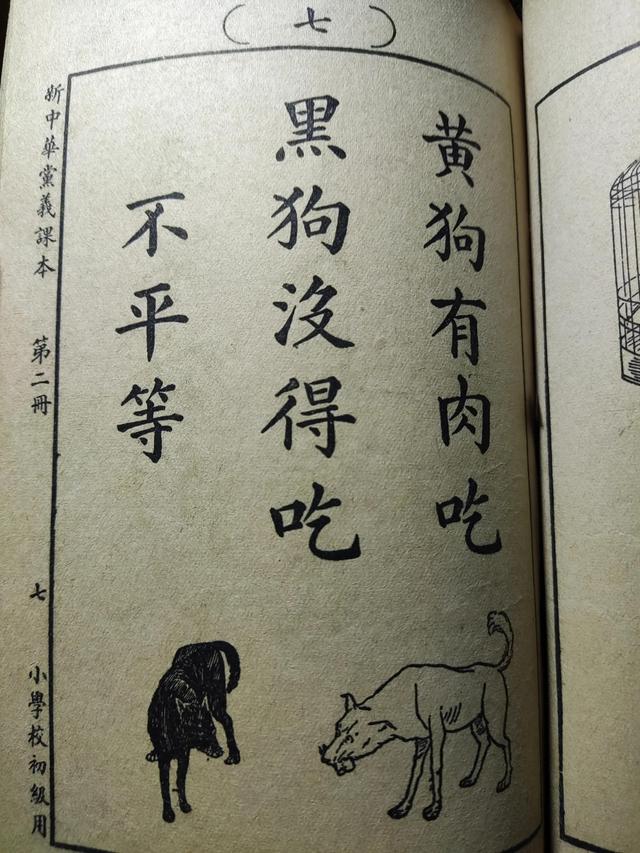 （七）
黃狗有肉吃
黑狗沒得吃
不平等
新中華黨義課本 第二冊 七 小學校初級用